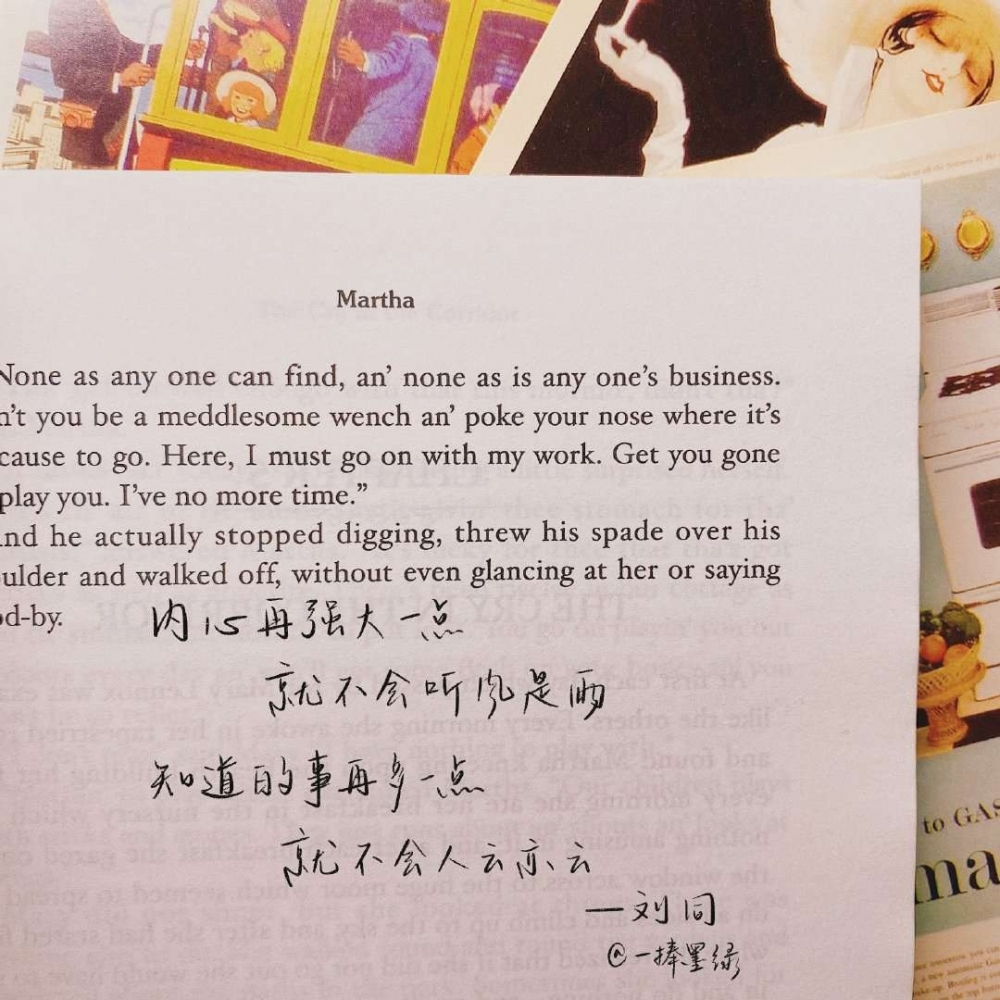 Martha
None as any one can find, an' none as is any one's business.
n't you be a meddlesome wench an' poke your nose where it's
cause to go. Here, I must go on with my work. Get you gone
play you. I've no more time.”
nd he actually stopped digging, threw his spade over his
oulder and walked off, without even glancing at her or saying
od-by.
内心再强大一点
就不会听风是雨
知道的事再多一点
就不会人云亦云
—刘同
@一捧墨绿
to GAS
ma